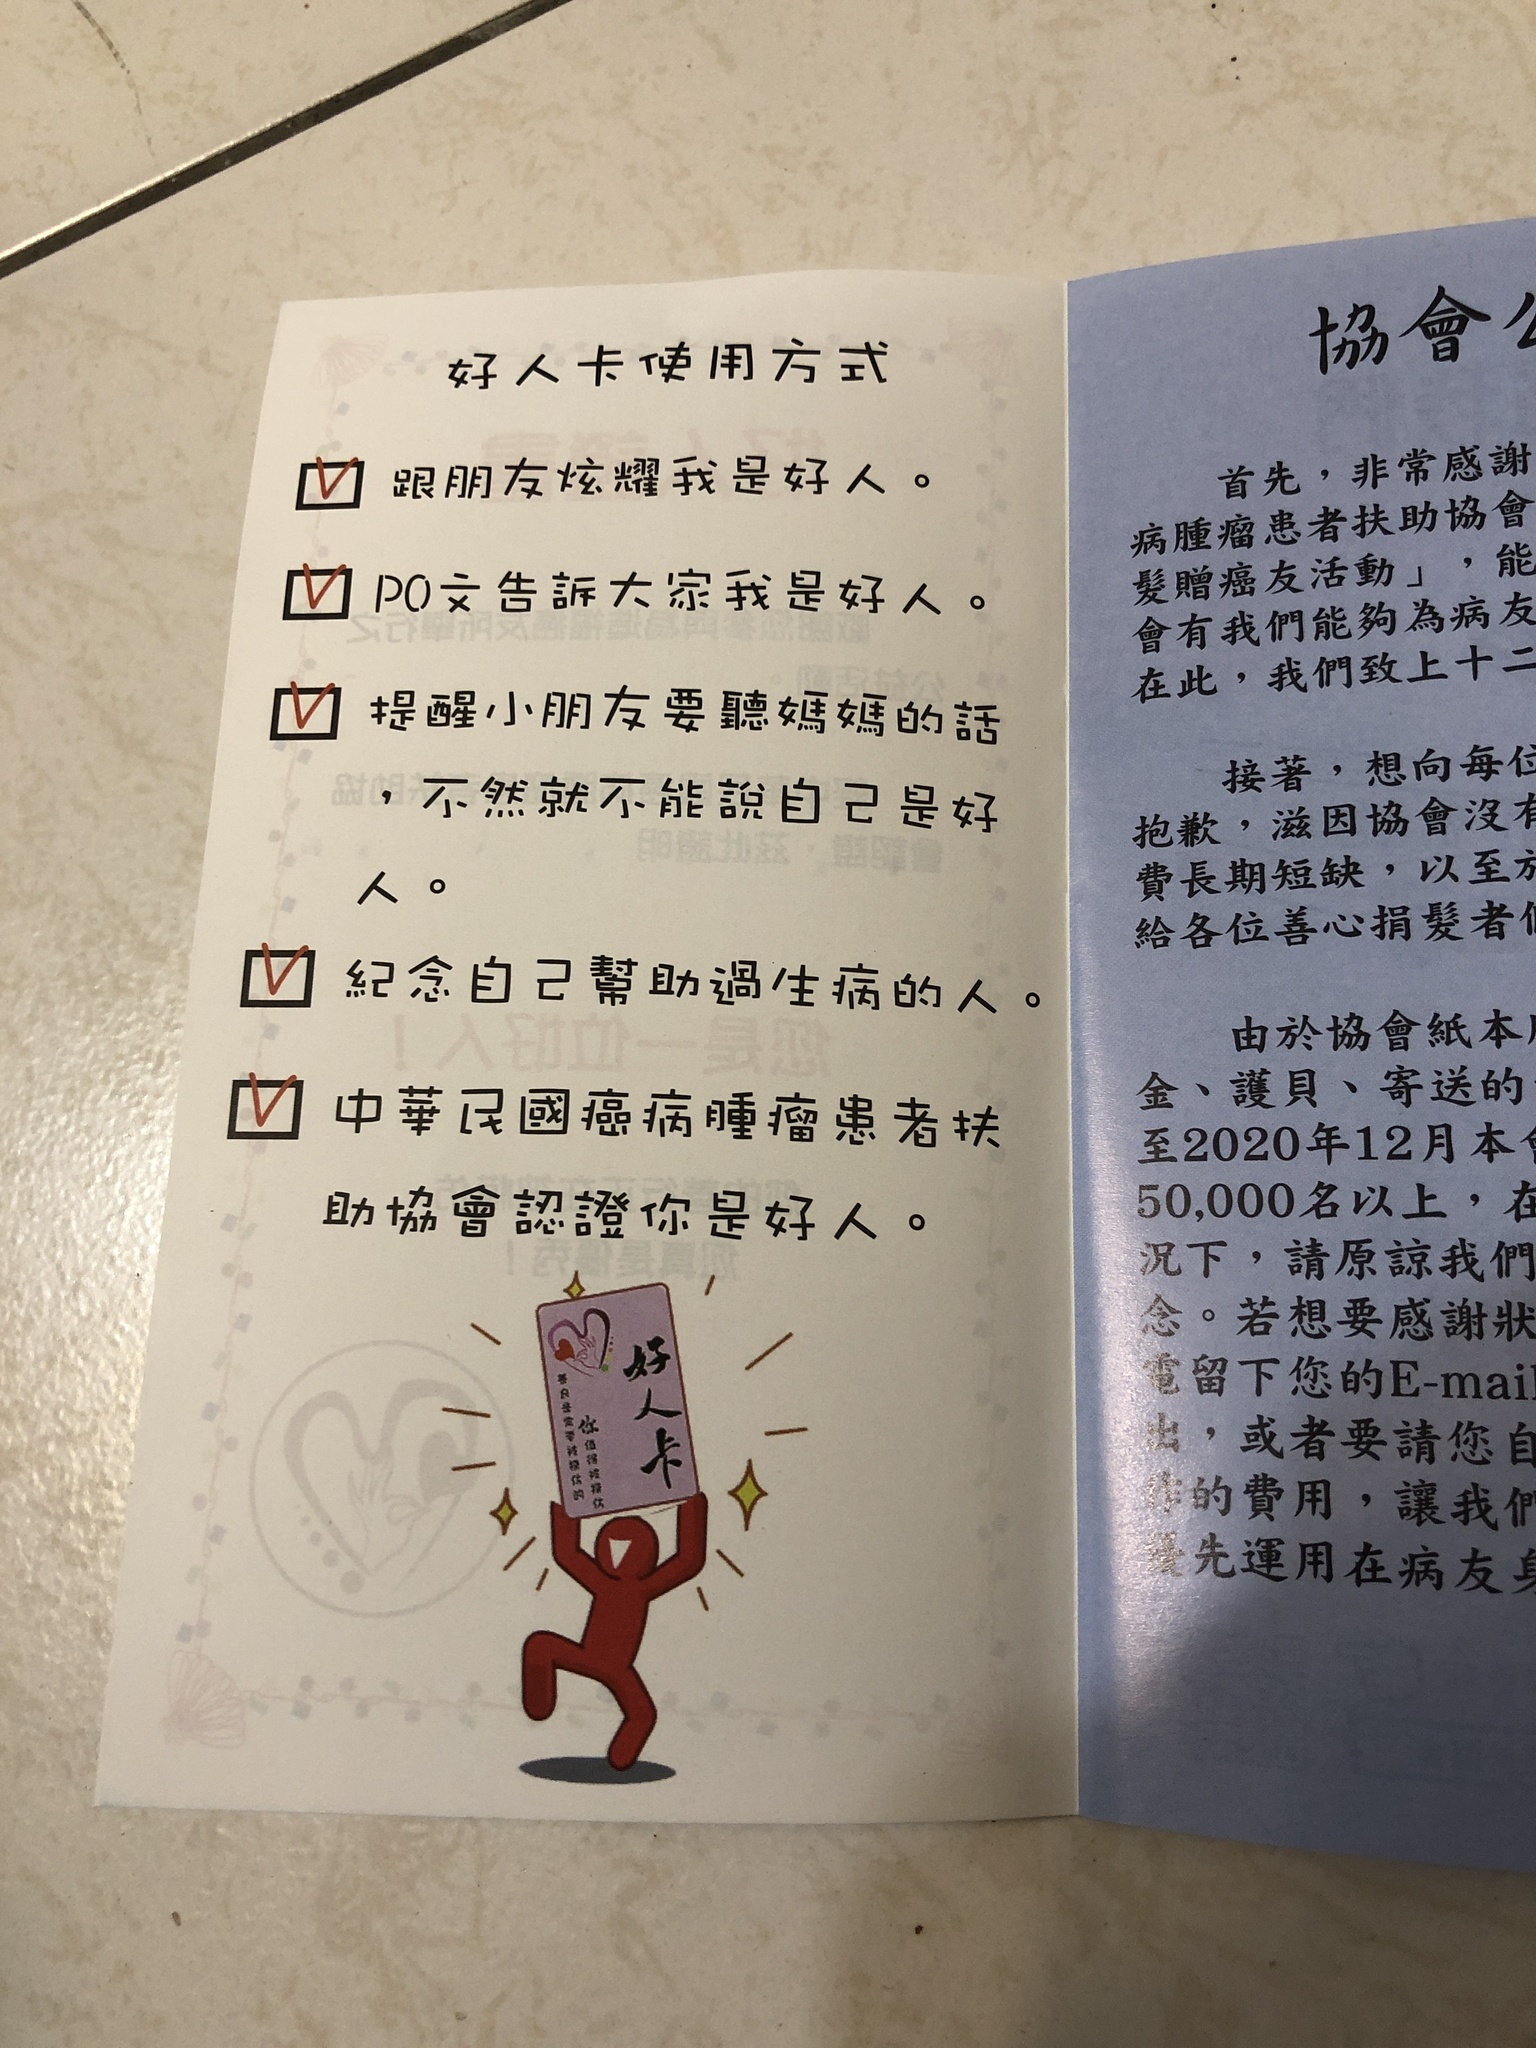 好人卡使用方式
跟朋友炫耀我是好人。
PO文告訴大家我是好人。
提醒小朋友要聽媽媽的話
，不然就不能說自己是好
人。
紀念自己幫助過生病的人。
中華民國癌病腫瘤患者扶
助協會認證你是好人。
好人卡
你值得被模仿
善良是需要被模仿的
協會公
首先，非常感謝
病腫瘤患者扶助協會
髮贈癌友活動」，能
會有我們能夠為病友
在此，我們致上十二
接著，想向每位
抱歉，滋因協會沒有
費長期短缺，以至於
給各位善心捐髮者
由於協會紙本
金、護貝、寄送的
至2020年12月本會
50,000名以上，在
況下，請原諒我們
念。若想要感謝狀
電留下您的E-mail
出，或者要請您自
作的費用，讓我們
優先運用在病友身
您是一位好人！